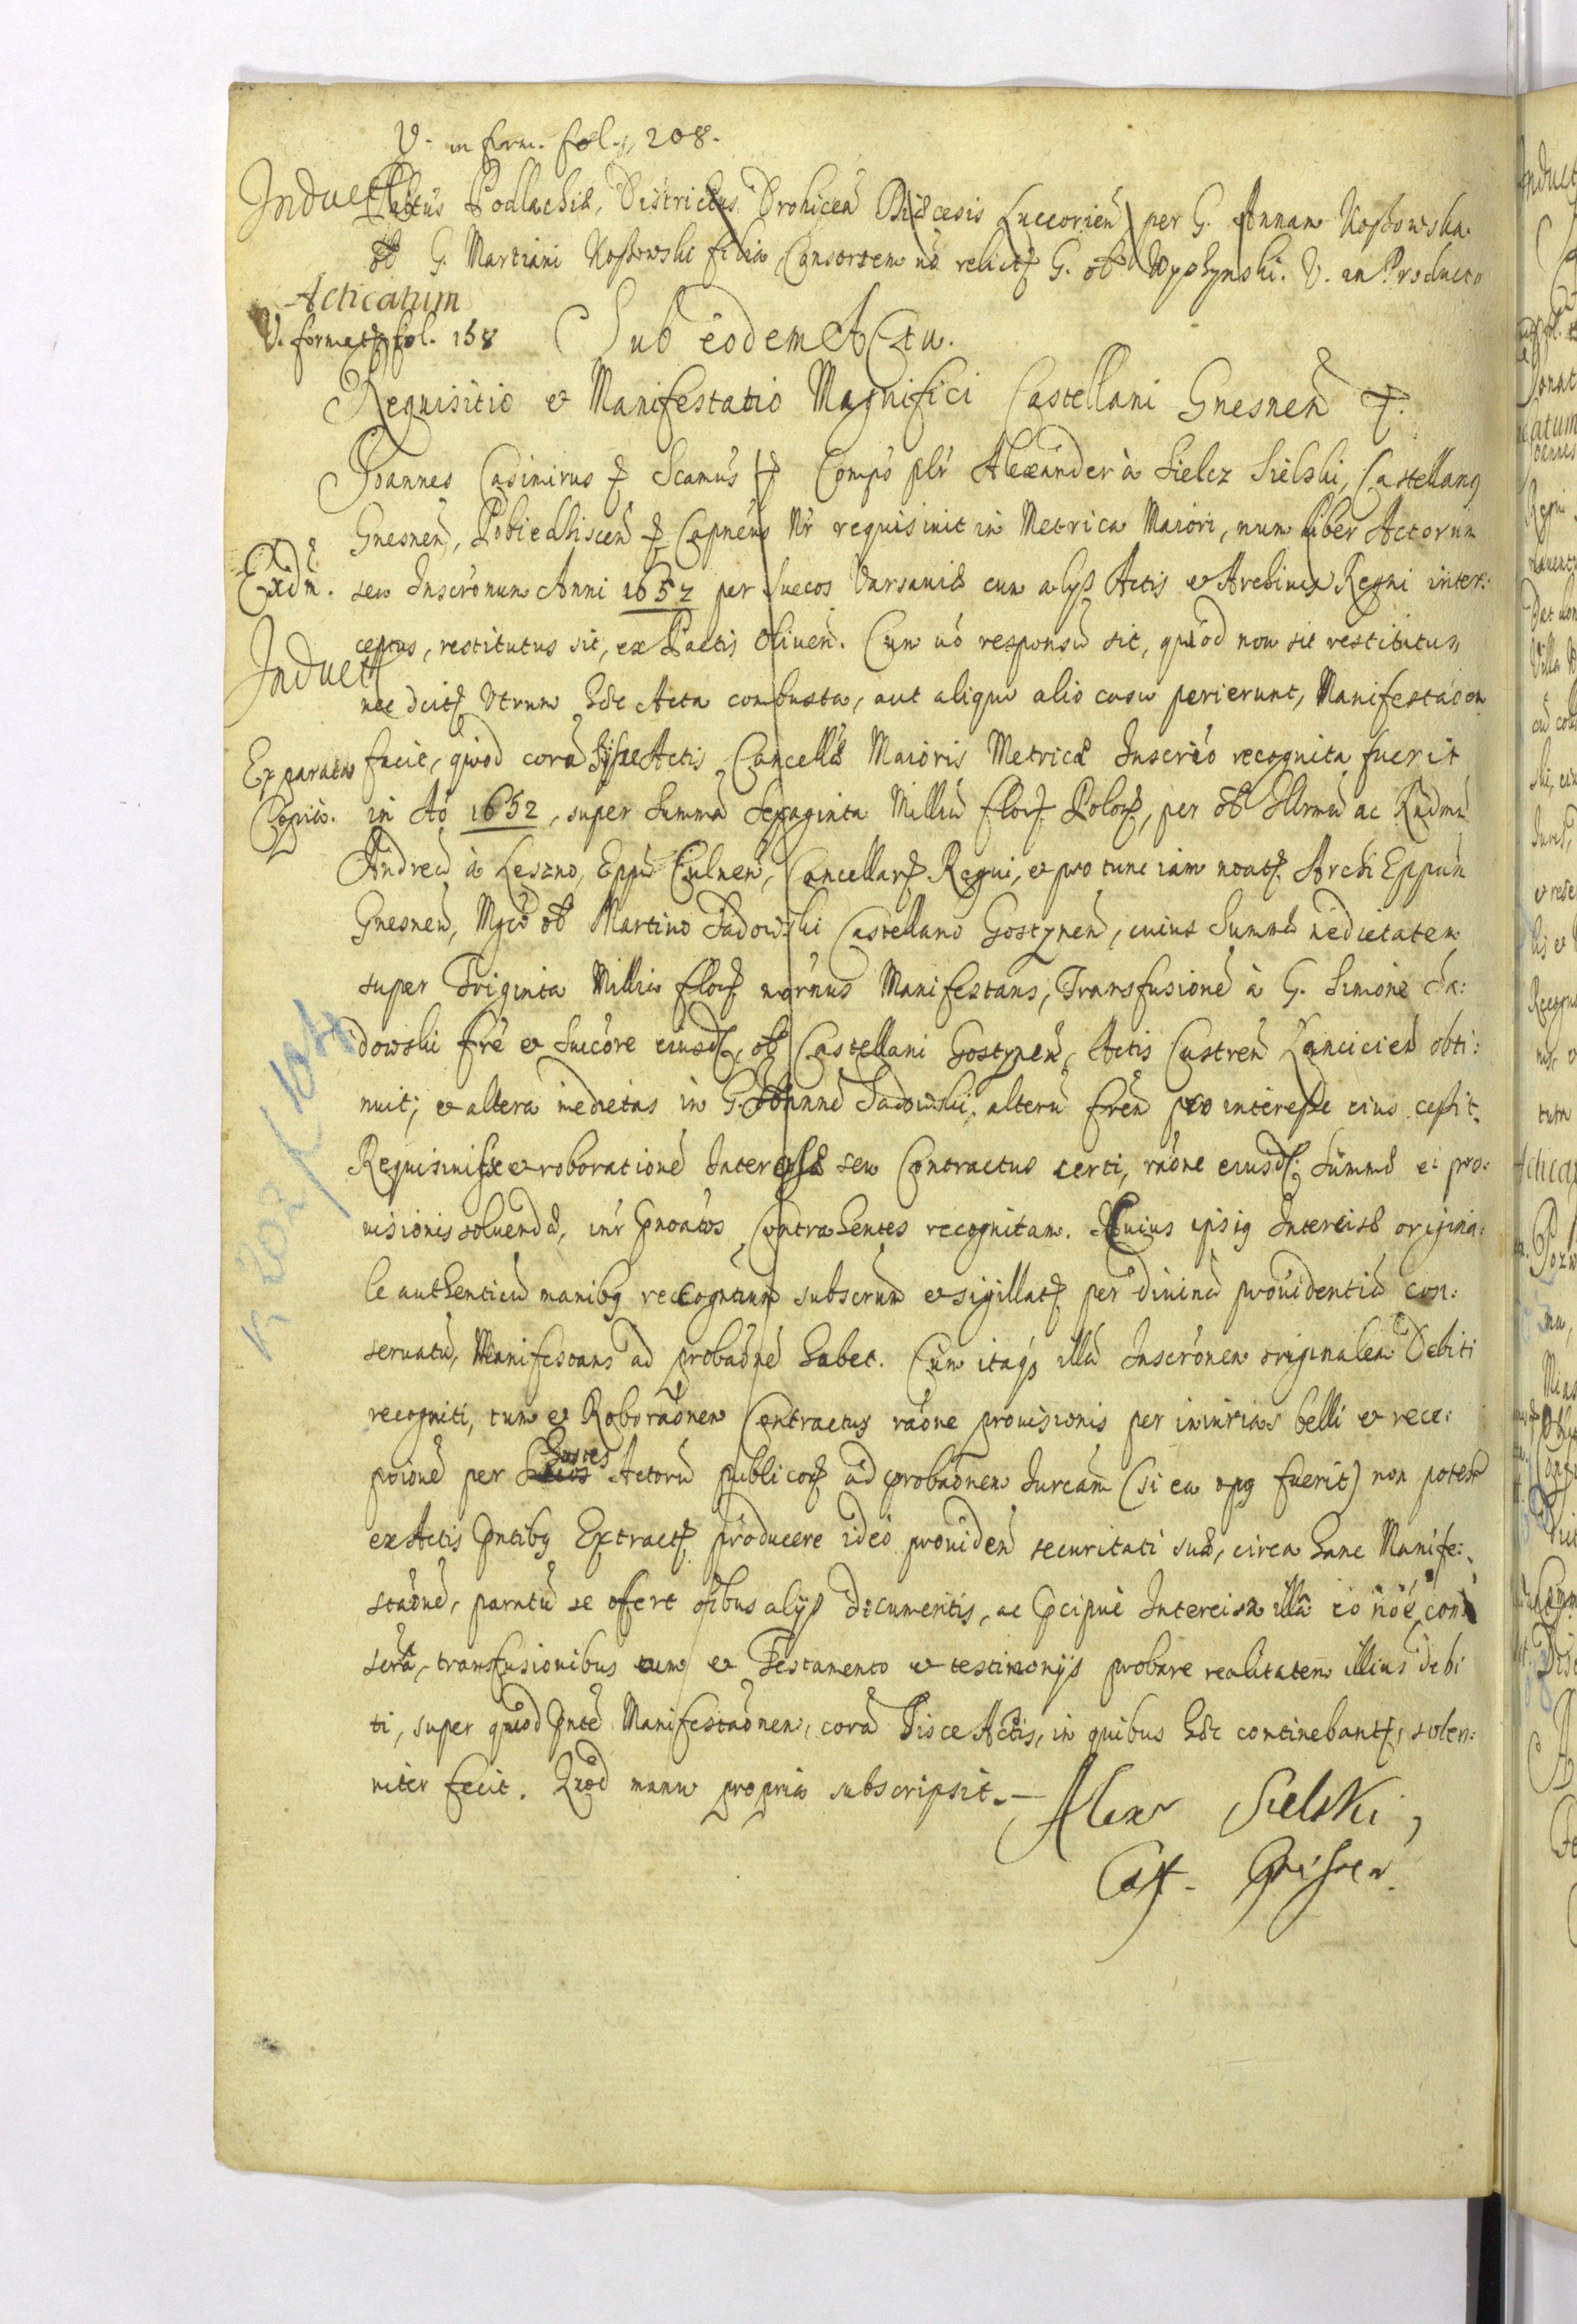 V. in form. fol. 208.
Induct
Palatus Podlachiæ, Districtus Drohicen Diæcesis Luceorien per G. Annam Kossowska
ol G. Martiani Kossowski filia, Consortem vo relict G. ol Wyszynski. V. in Producto
Acticatum
V. format fol. 158
Sub eodem Actu.
Requisitio et Manifestatio Magnifici Castellani Gnesnen
Joannes Casimirus Scamus Comps plr Alexander à Sielcz Sielski, Castellanus
Gnesnen, Pobiedziscen Capneus Nr requisivit in Metrica Maiori, num liber Actorum
Exdm.
seu Inscronum Anni 1652 per Suecos Varsaviæ cum alys Actis et Archiva Regni inter:
Induct
ceptus, restitutus sit, ex Pactis Oliven. Cum vo responsu sit, quod non sit restitutus,
nec dcit Utrum hæc Acta combusta, aut aliquo alio casu perierunt, Manifestaon
Ex parata
Copia.
facit, quod cora hisce Actis Cancellæ Maioris Metricæ Inscrio recognita fuerit
in Ao 1652, super Summa Sexaginta Milliu flor Polor, per ol Illrmu ac Rndmu
Andreu à Leszno, Eppu Culnen, Cancellar Regni, et pro tunc iam noat Archi Eppum
Gnesnen, Mgco ol Martino Sadowski Castellano Gostynen, cuius Summæ medietatem
super Triginta Millia flor nornus Manifestans, Transfusione à G. Simone Sa:
dowski fre et Succore eiusd ol Castellani Gostynen, Actis Castren Lancicien obti:
nuit; et altera medietas in G. Joanne Sadowski, alteru fren pro interesse eius cessit.
Requisivisse et roboratione Intercisæ seu Contractus certi, raone eiusd Summæ et pro:
visionis solvendæ, inr pnoatos Contrahentes recognitam. Cuius ipsius Intercisæ origina:
le authenticu manibus recognium subscrum et sigillat per divina providentia con:
servatu, Manifestans ad probaone habet. Cum itaque illa Inscronem originalem Debiti
recogniti, tum et Roboraonem Contractus raone provisionis per iniurias belli et rece:
ptione per hostes Actoru publicor ad probaonem Iuream (si ea opus fuerit) non potest
ex Actis pntibus Extract producere ideo providen securitati suæ, circa hanc Manife:
staone, paratu se offert oibus alijs documentis, ac pcipue Intercisa illa eo noe con
serta, transfusionibus tum et Testamento et testimonijs probare realitatem illius debi
ti, super quod pnte Manifestaonem, cora hisce Actis, in quibus hæc continebant, solen:
niter fecit. Quod manu propria subscripsit.—
Alexr Sielski,
Cast. Gnesnen.